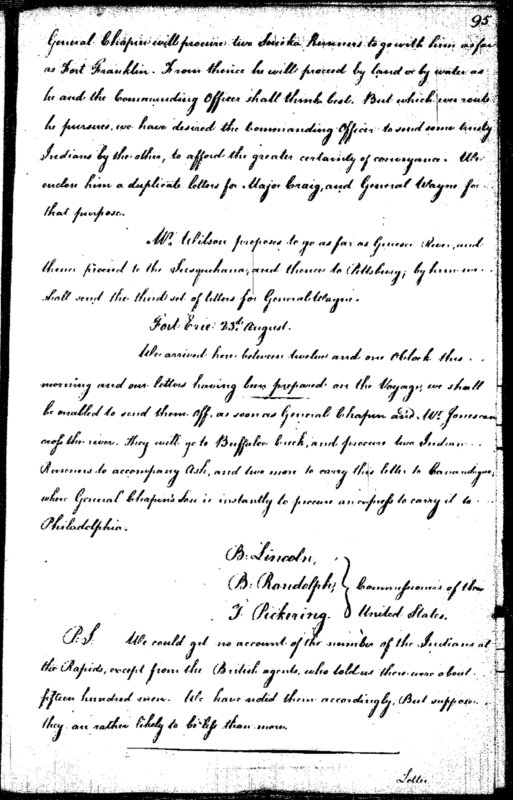 95
General Chapin will procure two Seneka Runners to go with him as far
as Fort Franklin. From thence he will proceed by land or by water as
he and the Commanding Officer shall think best. But which ever route
he pursues, we have desired the Commanding Officer to send some trusty
Indians by the other, to afford the greater certainty of conveyance. We
enclose him a duplicate letters for Major Craig, and General Wayne for
that purpose.
Mr. Wilson proposes to go as far as Genesee River, and
thence proceed to the Susquehana, and thence to Pittsburg; by him we
shall send the third set of letters for General Wayne.
Fort Erie 23d. August.
We arrived here between twelve and one Oclock this
morning and our letters having been prepared on the Voyage, we shall
be enabled to send them off, as soon as General Chapin and Mr. Jones can
cross the river. They will go to Buffaloe Creek, and procure two Indian
Runners to accompany Ash, and two more to carry this letter to Canandaigua,
where General Chapin's Son is instantly to procure an express to carry it to
Philadelphia.
B. Lincoln,
B. Randolph, } Commissioners of the
T. Pickering. United States.
P.S. We could get no account of the number of the Indians at
the Rapids, except from the British agents, who told us there were about
fifteen hundred men. We have noted them accordingly, But suppose
they are rather likely to be less than more.
Letter